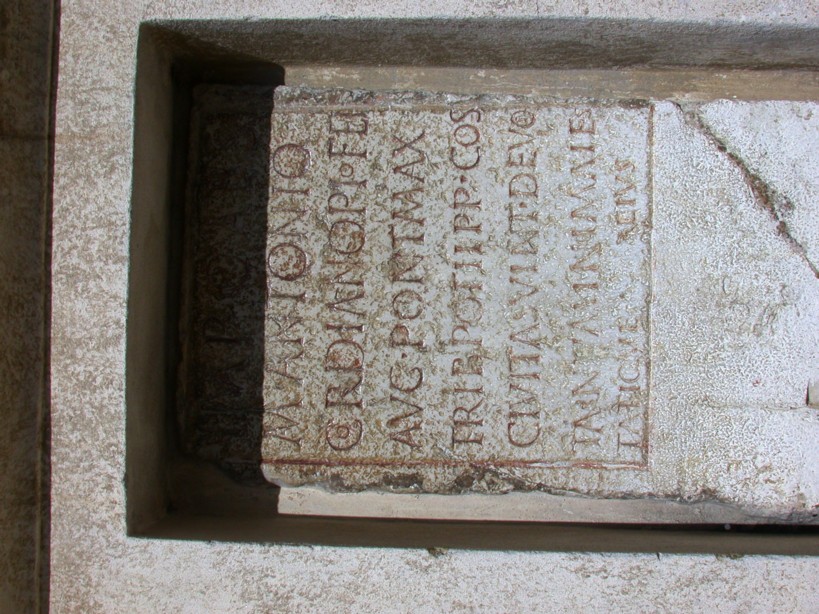 M·ANTONIO
GORDIANO·PI·FEL
AVG·PONT·MAX
TRIB·POT·II·P·P·COS
CIVITAS·VINT·DEVO
TA·NVMINI·MAIES
TATIQVE EIVS